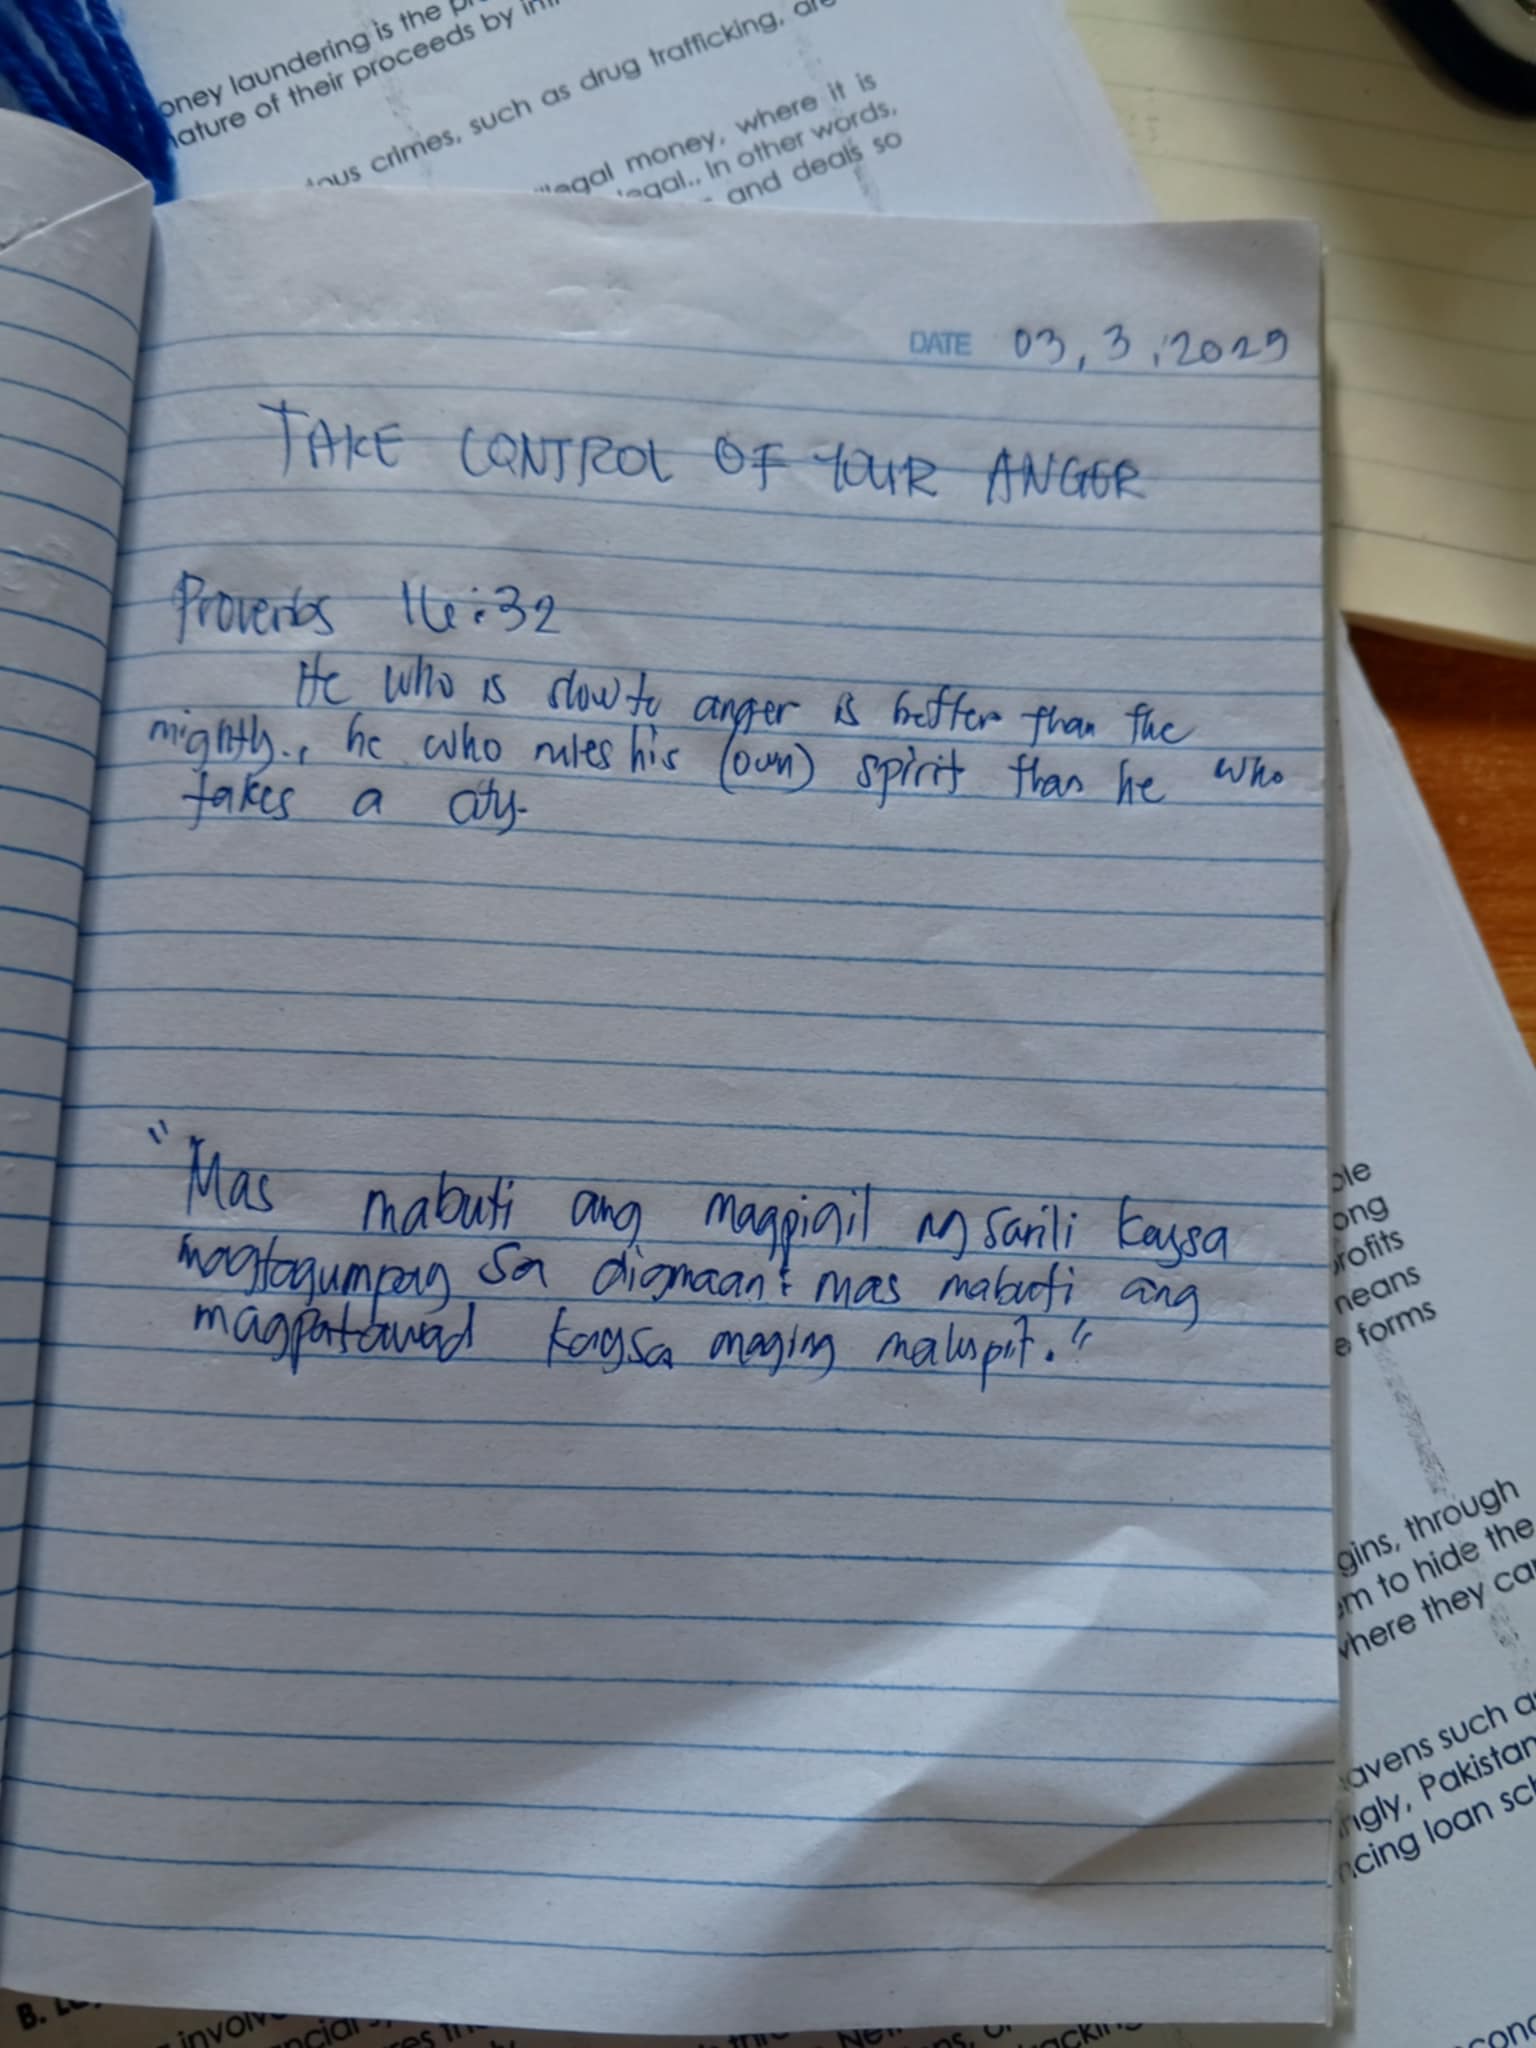 oney laundering is the pr
nature of their proceeds by in
ious crimes, such as drug trafficking, are
illegal money, where it is
legal.. In other words,
and deals so
DATE 03, 3, 2029
TAKE CONTROL OF YOUR ANGER
Proverbs 16:32
He who is slow to anger is better than the
mightly., he who rules his (own) spirit than he who
takes a city.
"Mas mabuti ang magpigil ng sarili kaysa
magtagumpay sa digmaan: mas mabuti ang
magpatawad kaysa maging malupit."
ole
ong
profits
neans
e forms
gins, through
em to hide the
where they ca
avens such a
ngly, Pakistan
ncing loan sch
B.
involv
ancial